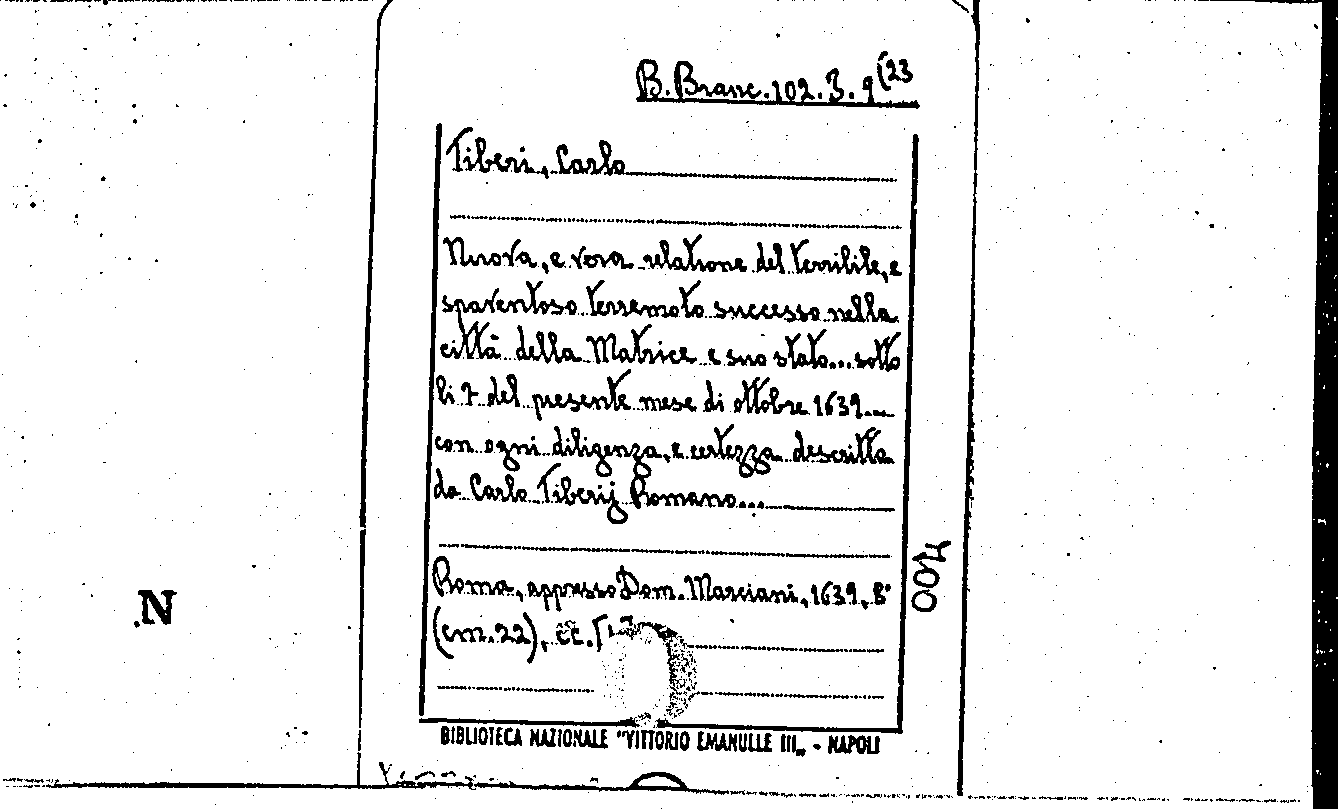 B. Branc. 102. 3. 9 (23
Tiberi, Carlo
Nuova, e vera relatione del terribile, e
spaventoso terremoto successo nella
città della Matrice e suo stato... sotto
li 7 del presente mese di ottobre 1639...
con ogni diligenza, e certezza descritta
da Carlo Tiberij Romano...
Roma, appresso Dom. Marciani, 1639, 8°
(cm. 22), cc.
BIBLIOTECA NAZIONALE "VITTORIO EMANULLE III„ - NAPOLI
.N